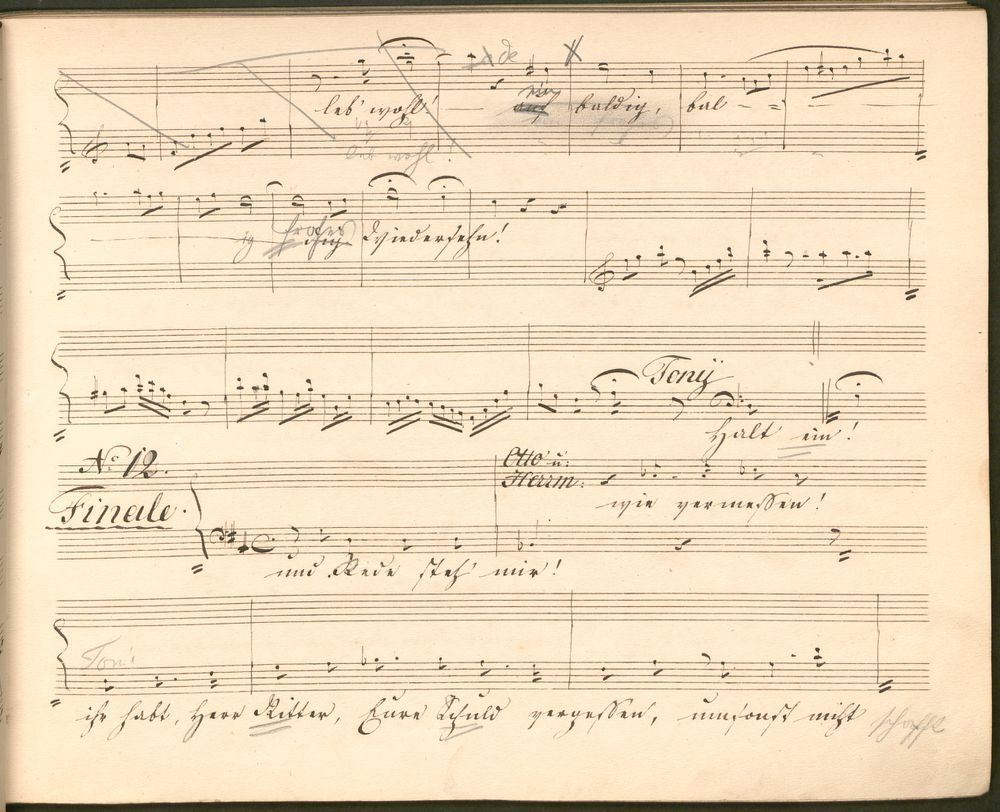 leb' wohl! ein baldig, bal - -
leb wohl!
ig frohes Wiedersehn!
Tonÿ
Halt ein!
No. 12.
Finale.
Otto u:
Herrm:
wie vermessen!
und Rede steh' mir!
Toni
ihr habt, Herr Ritter, Eure Schuld vergessen, umsonst nicht schafft